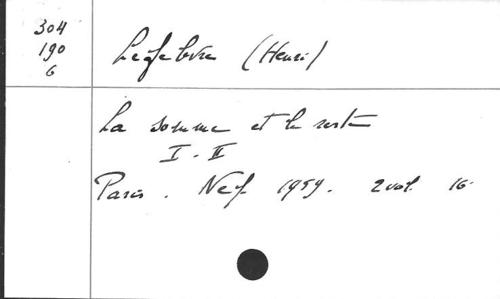 304
190
6
Lefebvre (Henri)
La somme et le reste
I. II
Paris. Nef 1959. 2 vol. 16